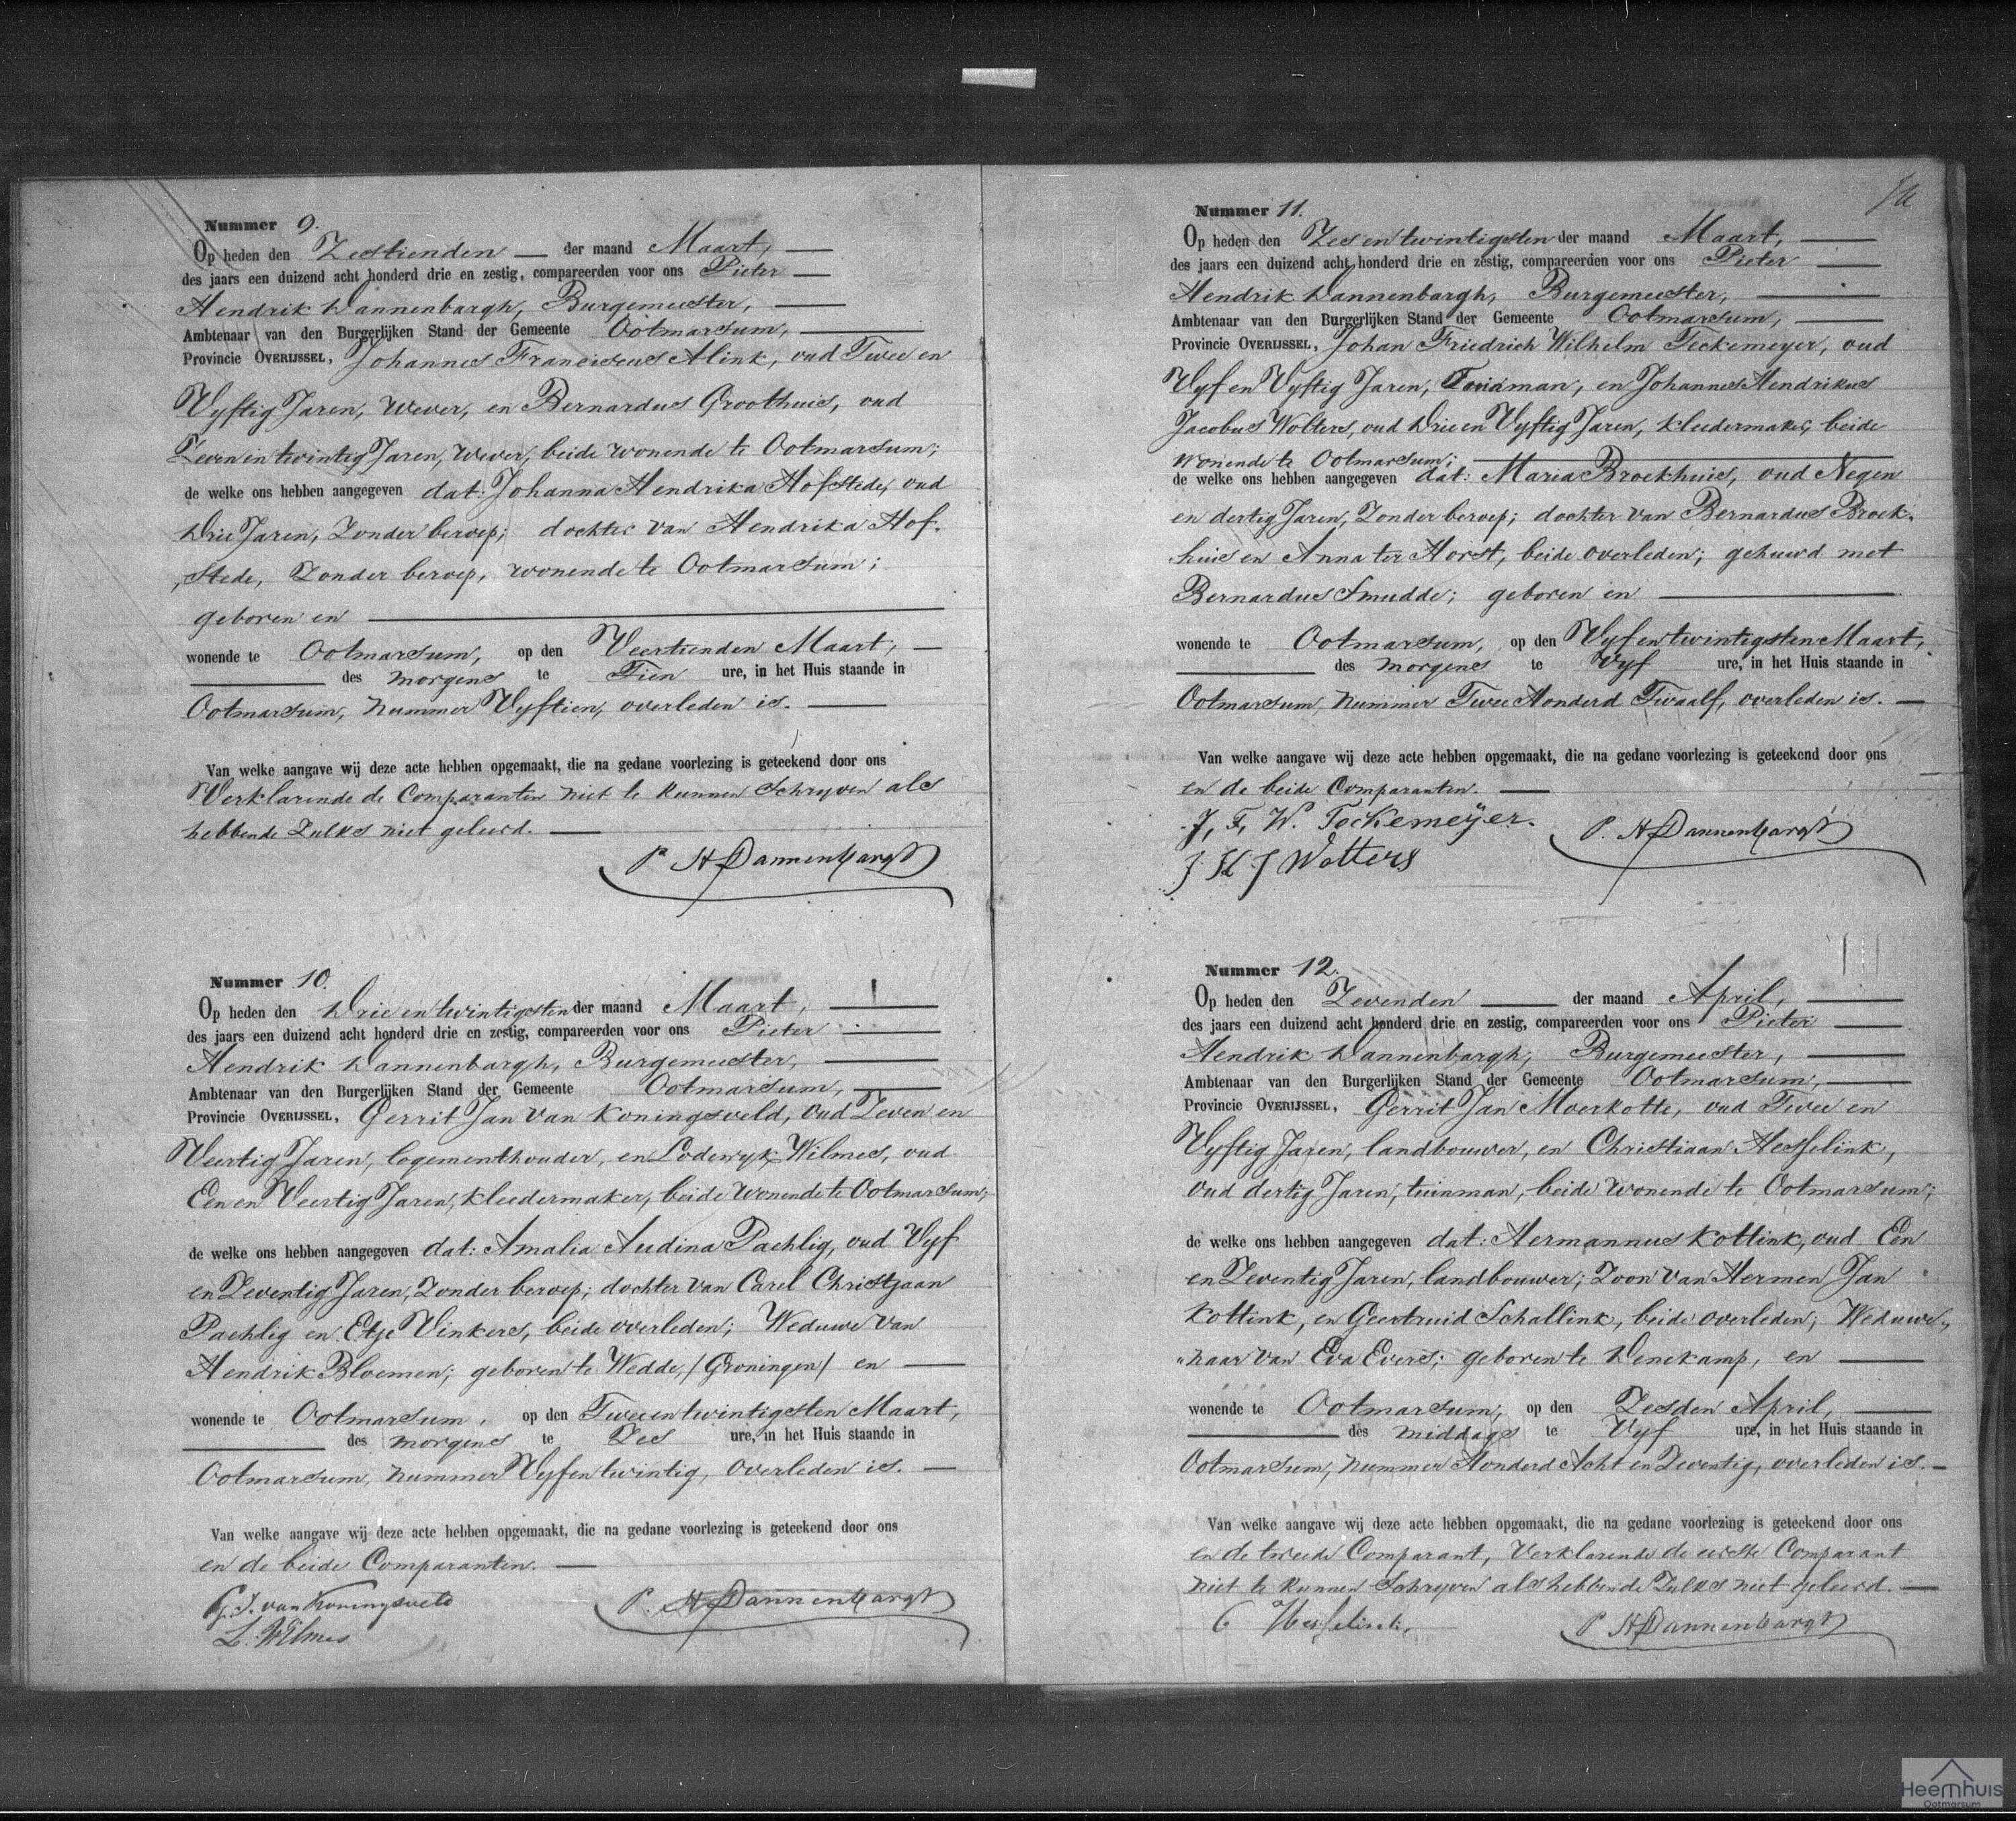 Nummer 9.
Op heden den Zestienden der maand Maart,
des jaars een duizend acht honderd drie en zestig, compareerden voor ons Pieter
Hendrik Dannenbargh, Burgemeester,
Ambtenaar van den Burgerlijken Stand der Gemeente Ootmarsum,
Provincie OVERIJSSEL, Johannes Franciscus Alink, oud Twee en
Vyftig Jaren, Wever, en Bernardus Groothuis, oud
Zeven en twintig Jaren, Wever, beide wonende te Ootmarsum;
de welke ons hebben aangegeven dat: Johanna Hendrika Hofstede, oud
Drie Jaren, Zonder beroep; dochter van Hendrika Hof-
stede, Zonder beroep, wonende te Ootmarsum;
geboren en
wonende te Ootmarsum, op den Veertienden Maart,
des morgens te Tien ure, in het Huis staande in
Ootmarsum, nummer Vyftien, overleden is.
Van welke aangave wij deze acte hebben opgemaakt, die na gedane voorlezing is geteekend door ons
Verklarende de Comparanten niet te kunnen Schryven als
hebbende Zulks niet geleerd.
P. H Dannenbargh
Nummer 10.
Op heden den Drie en twintigsten der maand Maart,
des jaars een duizend acht honderd drie en zestig, compareerden voor ons Pieter
Hendrik Dannenbargh, Burgemeester,
Ambtenaar van den Burgerlijken Stand der Gemeente Ootmarsum,
Provincie OVERIJSSEL, Gerrit Jan van Koningsveld, oud Zeven en
Veertig Jaren, logementhouder, en Lodewyk Wilmes, oud
Een en Veertig Jaren, Kleedermaker, beide wonende te Ootmarsum;
de welke ons hebben aangegeven dat: Amalia Audina Paehlig, oud Vyf
en Zeventig Jaren, Zonder beroep; dochter van Carel Christjaan
Paehlig en Etje Vinkers, beide overleden; Weduwe van
Hendrik Bloemen; geboren te Wedde, (Groningen) en
wonende te Ootmarsum, op den Twee en twintigsten Maart,
des morgens te Zes ure, in het Huis staande in
Ootmarsum, nummer Vyf en twintig, overleden is.
Van welke aangave wij deze acte hebben opgemaakt, die na gedane voorlezing is geteekend door ons
en de beide Comparanten.
G. J. van Koningsveld P. H Dannenbargh
L. Wilmes
Nummer 11.
Op heden den Zes en twintigsten der maand Maart,
des jaars een duizend acht honderd drie en zestig, compareerden voor ons Pieter
Hendrik Dannenbargh, Burgemeester,
Ambtenaar van den Burgerlijken Stand der Gemeente Ootmarsum,
Provincie OVERIJSSEL, Johan Friedrich Wilhelm Teckemeyer, oud
Vyf en Vyftig Jaren, en Johannes Hendrikus
Jacobus Wolters, oud Drie en Vyftig Jaren, Kleedermaker, beide
wonende te Ootmarsum;
de welke ons hebben aangegeven dat: Maria Broekhuis, oud Negen
en dertig Jaren, Zonder beroep; dochter van Bernardus Broek-
huis en Anna ter Horst, beide overleden; gehuwd met
Bernardus Smudde; geboren en
wonende te Ootmarsum, op den Vyf en twintigsten Maart,
des morgens te Vyf ure, in het Huis staande in
Ootmarsum, nummer Twee Honderd Twaalf, overleden is.
Van welke aangave wij deze acte hebben opgemaakt, die na gedane voorlezing is geteekend door ons
en de beide Comparanten.
J, F, W. Teckemeÿer. P. H Dannenbargh
J H J Wolters
Nummer 12.
Op heden den Zevenden der maand April,
des jaars een duizend acht honderd drie en zestig, compareerden voor ons Pieter
Hendrik Dannenbargh, Burgemeester,
Ambtenaar van den Burgerlijken Stand der Gemeente Ootmarsum,
Provincie OVERIJSSEL, Gerrit Jan Moerkotte, oud Twee en
Vyftig Jaren, landbouwer, en Christiaan Hesselink,
oud dertig Jaren, tuinman, beide wonende te Ootmarsum;
de welke ons hebben aangegeven dat: Hermannus Kottink, oud Een
en Zeventig Jaren, landbouwer; Zoon van Hermen Jan
Kottink, en Geertruid Schallink, beide overleden; Weduwe-
naar van Eva Evers; geboren te Denekamp, en
wonende te Ootmarsum, op den Zesden April,
des middags te Vyf ure, in het Huis staande in
Ootmarsum, nummer Honderd Acht en Zeventig, overleden is.
Van welke aangave wij deze acte hebben opgemaakt, die na gedane voorlezing is geteekend door ons
en de tweede Comparant, Verklarende de eerste Comparant
niet te kunnen Schryven als hebbende Zulks niet geleerd.
C Hesselink. P H Dannenbargh
Heemhuis
Ootmarsum